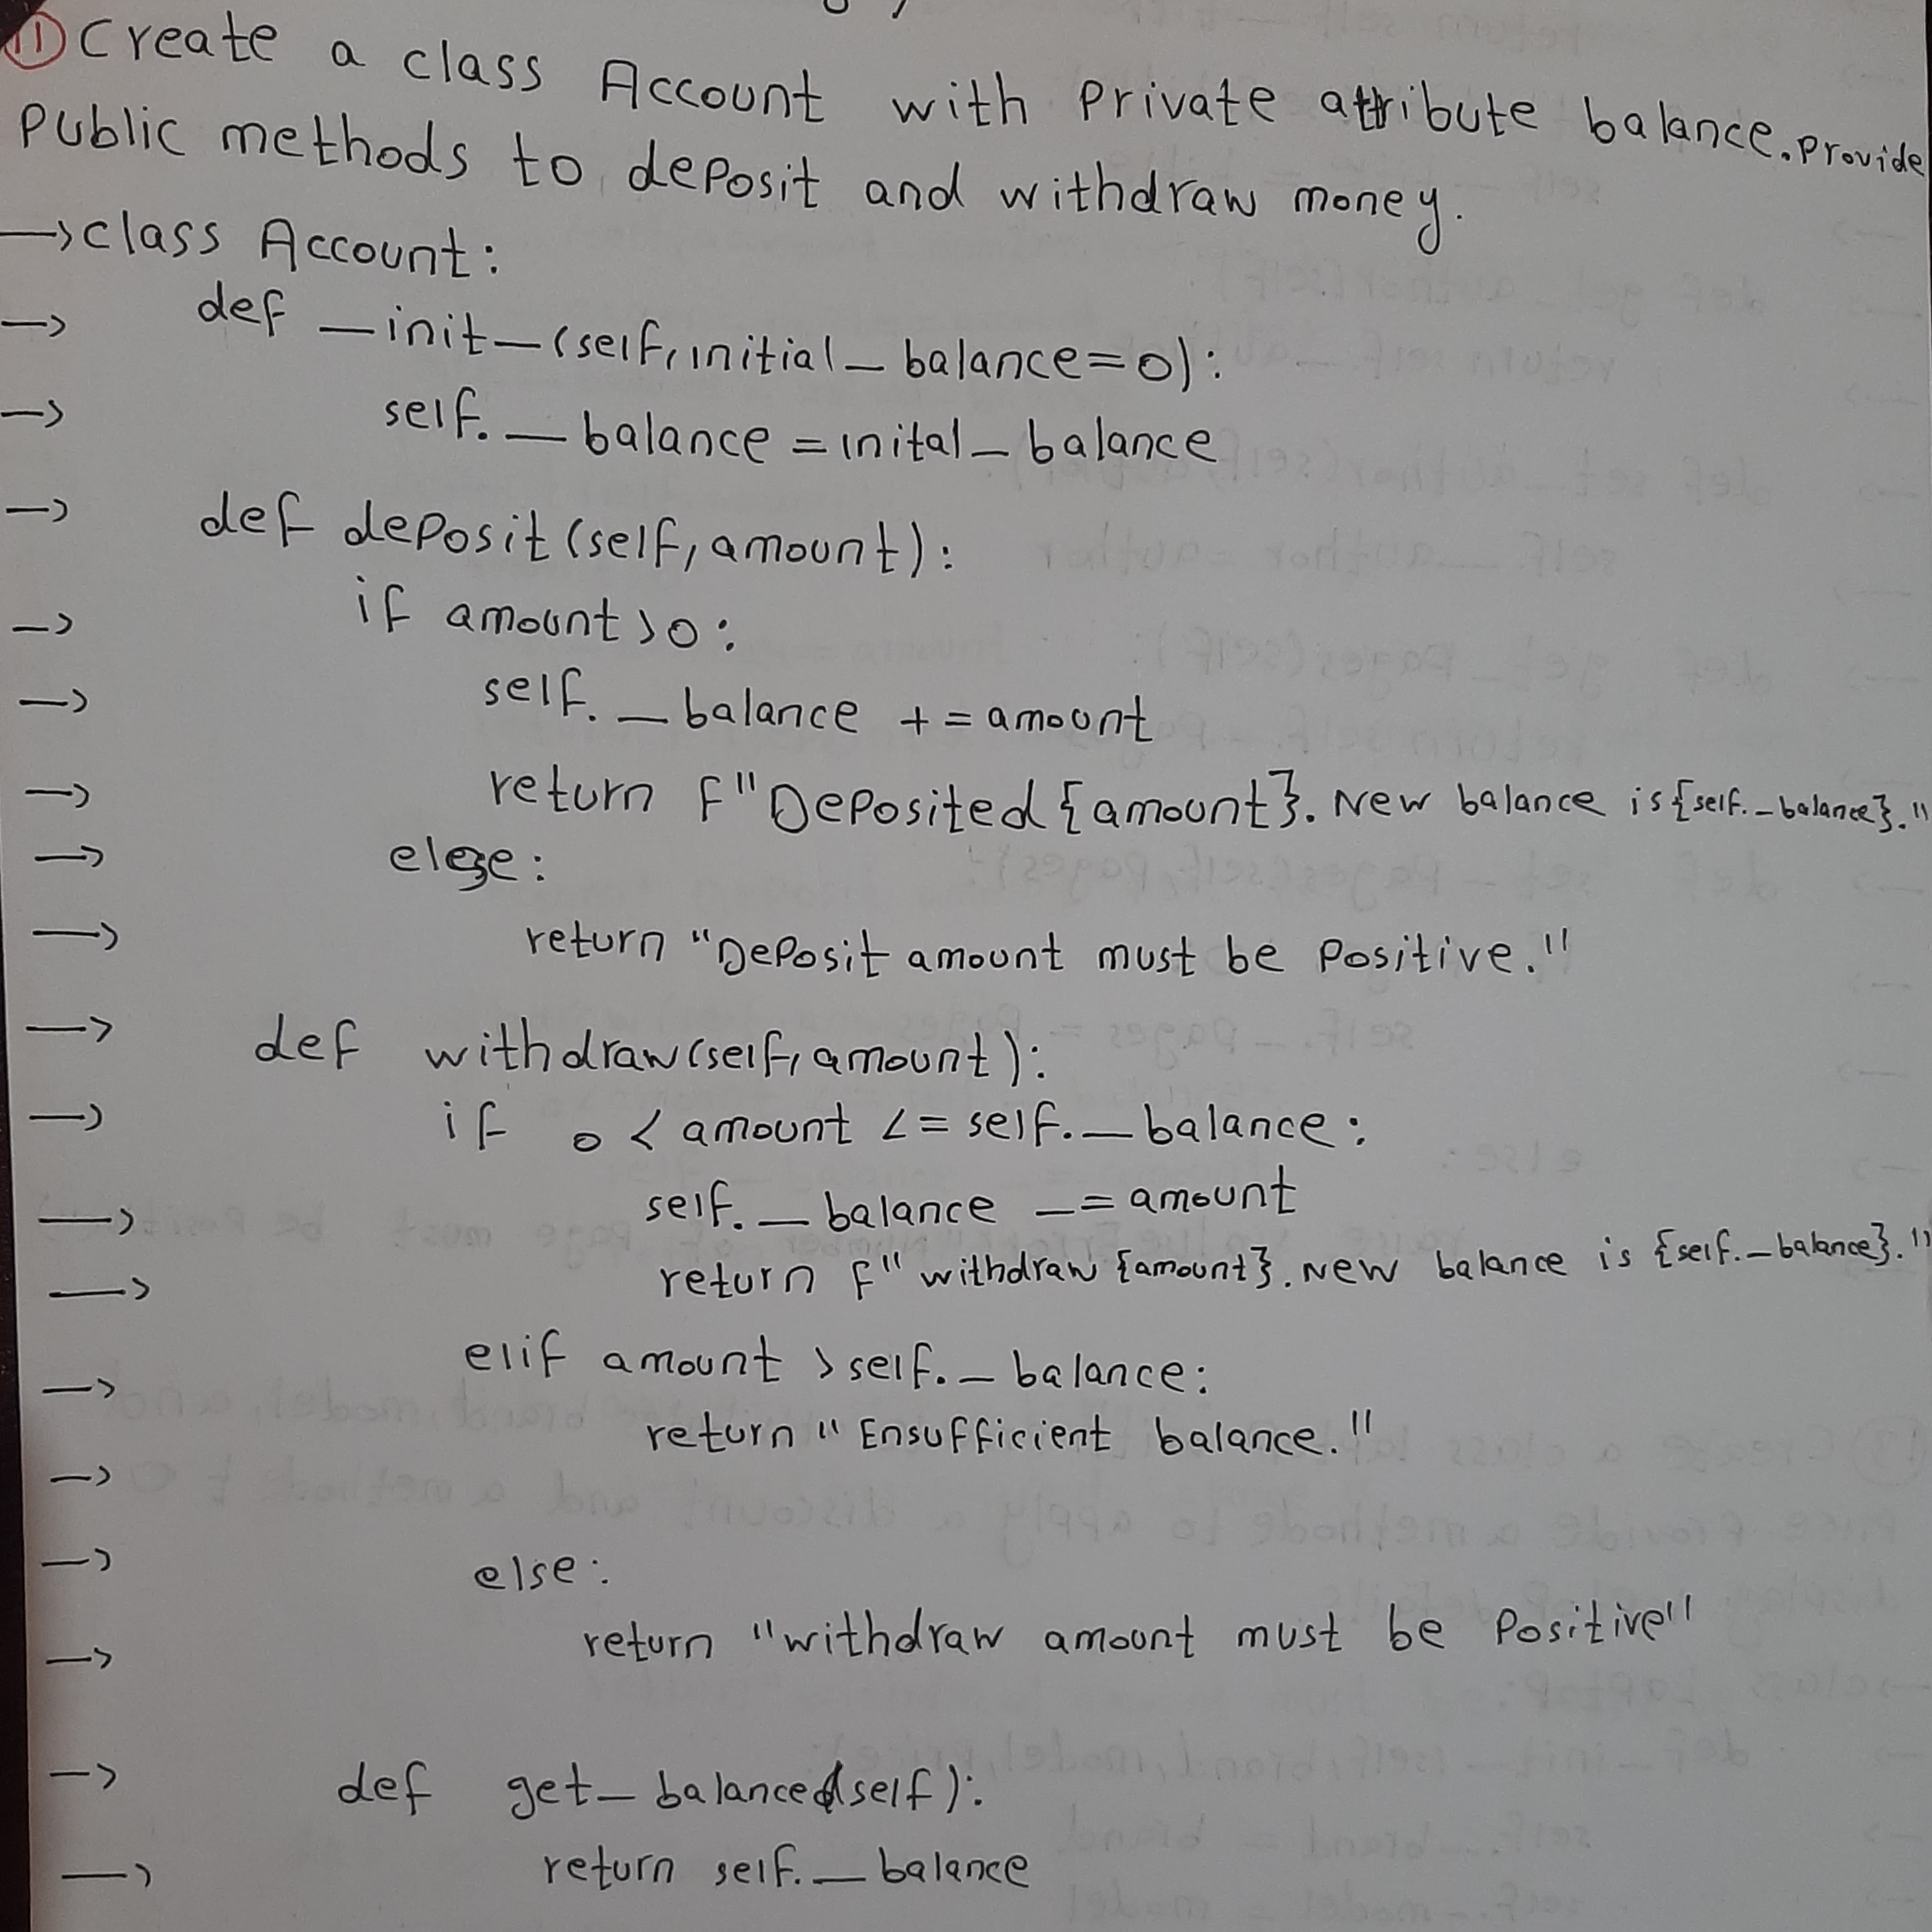 11) Create a class Account with private attribute balance. Provide
Public methods to deposit and withdraw money.
→ class Account:
→ def _init_(self, initial_balance=0):
→ self._balance = inital_balance
→ def deposit(self, amount):
→ if amount>0:
→ self._balance += amount
→ return f"Deposited {amount}. New balance is {self._balance}."
→ else:
→ return "Deposit amount must be Positive."
→ def withdraw(self, amount):
→ if 0 < amount <= self._balance:
→ self._balance -= amount
→ return f"withdraw {amount}. New balance is {self._balance}."
→ elif amount > self._balance:
→ return "Ensufficient balance."
→ else:
→ return "withdraw amount must be Positive"
→ def get_balance(self):
→ return self._balance